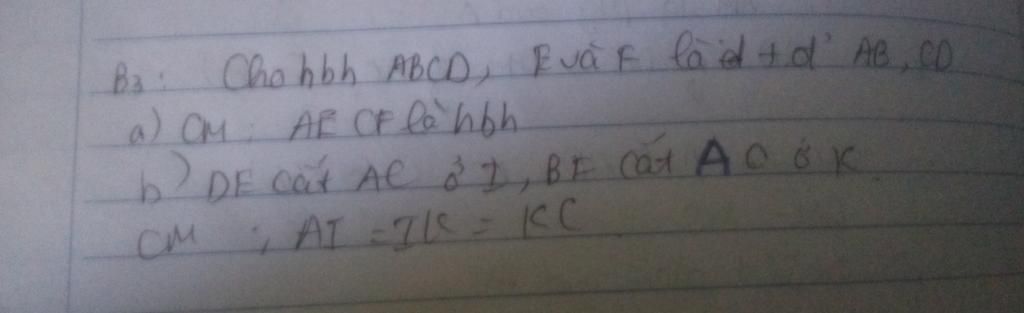 B3: Cho hbh ABCD, E và F là đ + d' AB, CD
a) CM: AE CF là hbh
b) DE cắt AC ở I, BF cắt AC ở K
CM : AI = IK = KC